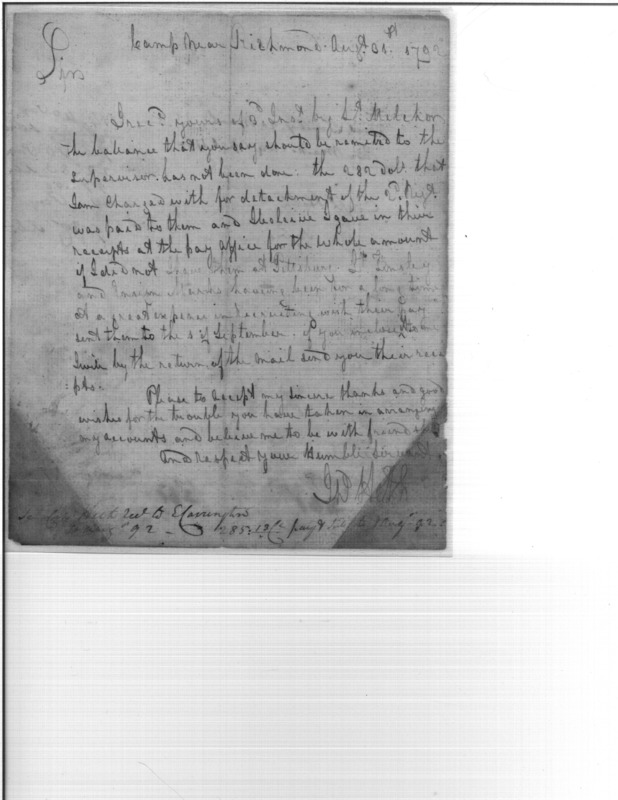 Camp Near Richmond Augt. 31st. 1792
Sir
I recd. yours of 2d. Inst. by Lt. Melchor
the ballance that you say should be remeted to the
supervisor has not been done the 282 dols. that
I am Charged with for detachment of the 2d. Regt.
was paid to them and I beleive I gave in their
receipts at the pay office for the whole amount
if I did not leave them at Pittsburg. Lt.
and Ensign having been for a long time
at a great expence in recruiting wish their pay
sent them to the 1st of September. if you inclose it to me
I will by the return of the mail send you their recei
:pts.
Please to accept my sincere thanks and good
wishes for the trouble you have taken in arranging
my accounts and beleive me to be with friendship
and respect your Humble Servant
Jno.
Carrington
92 pay &